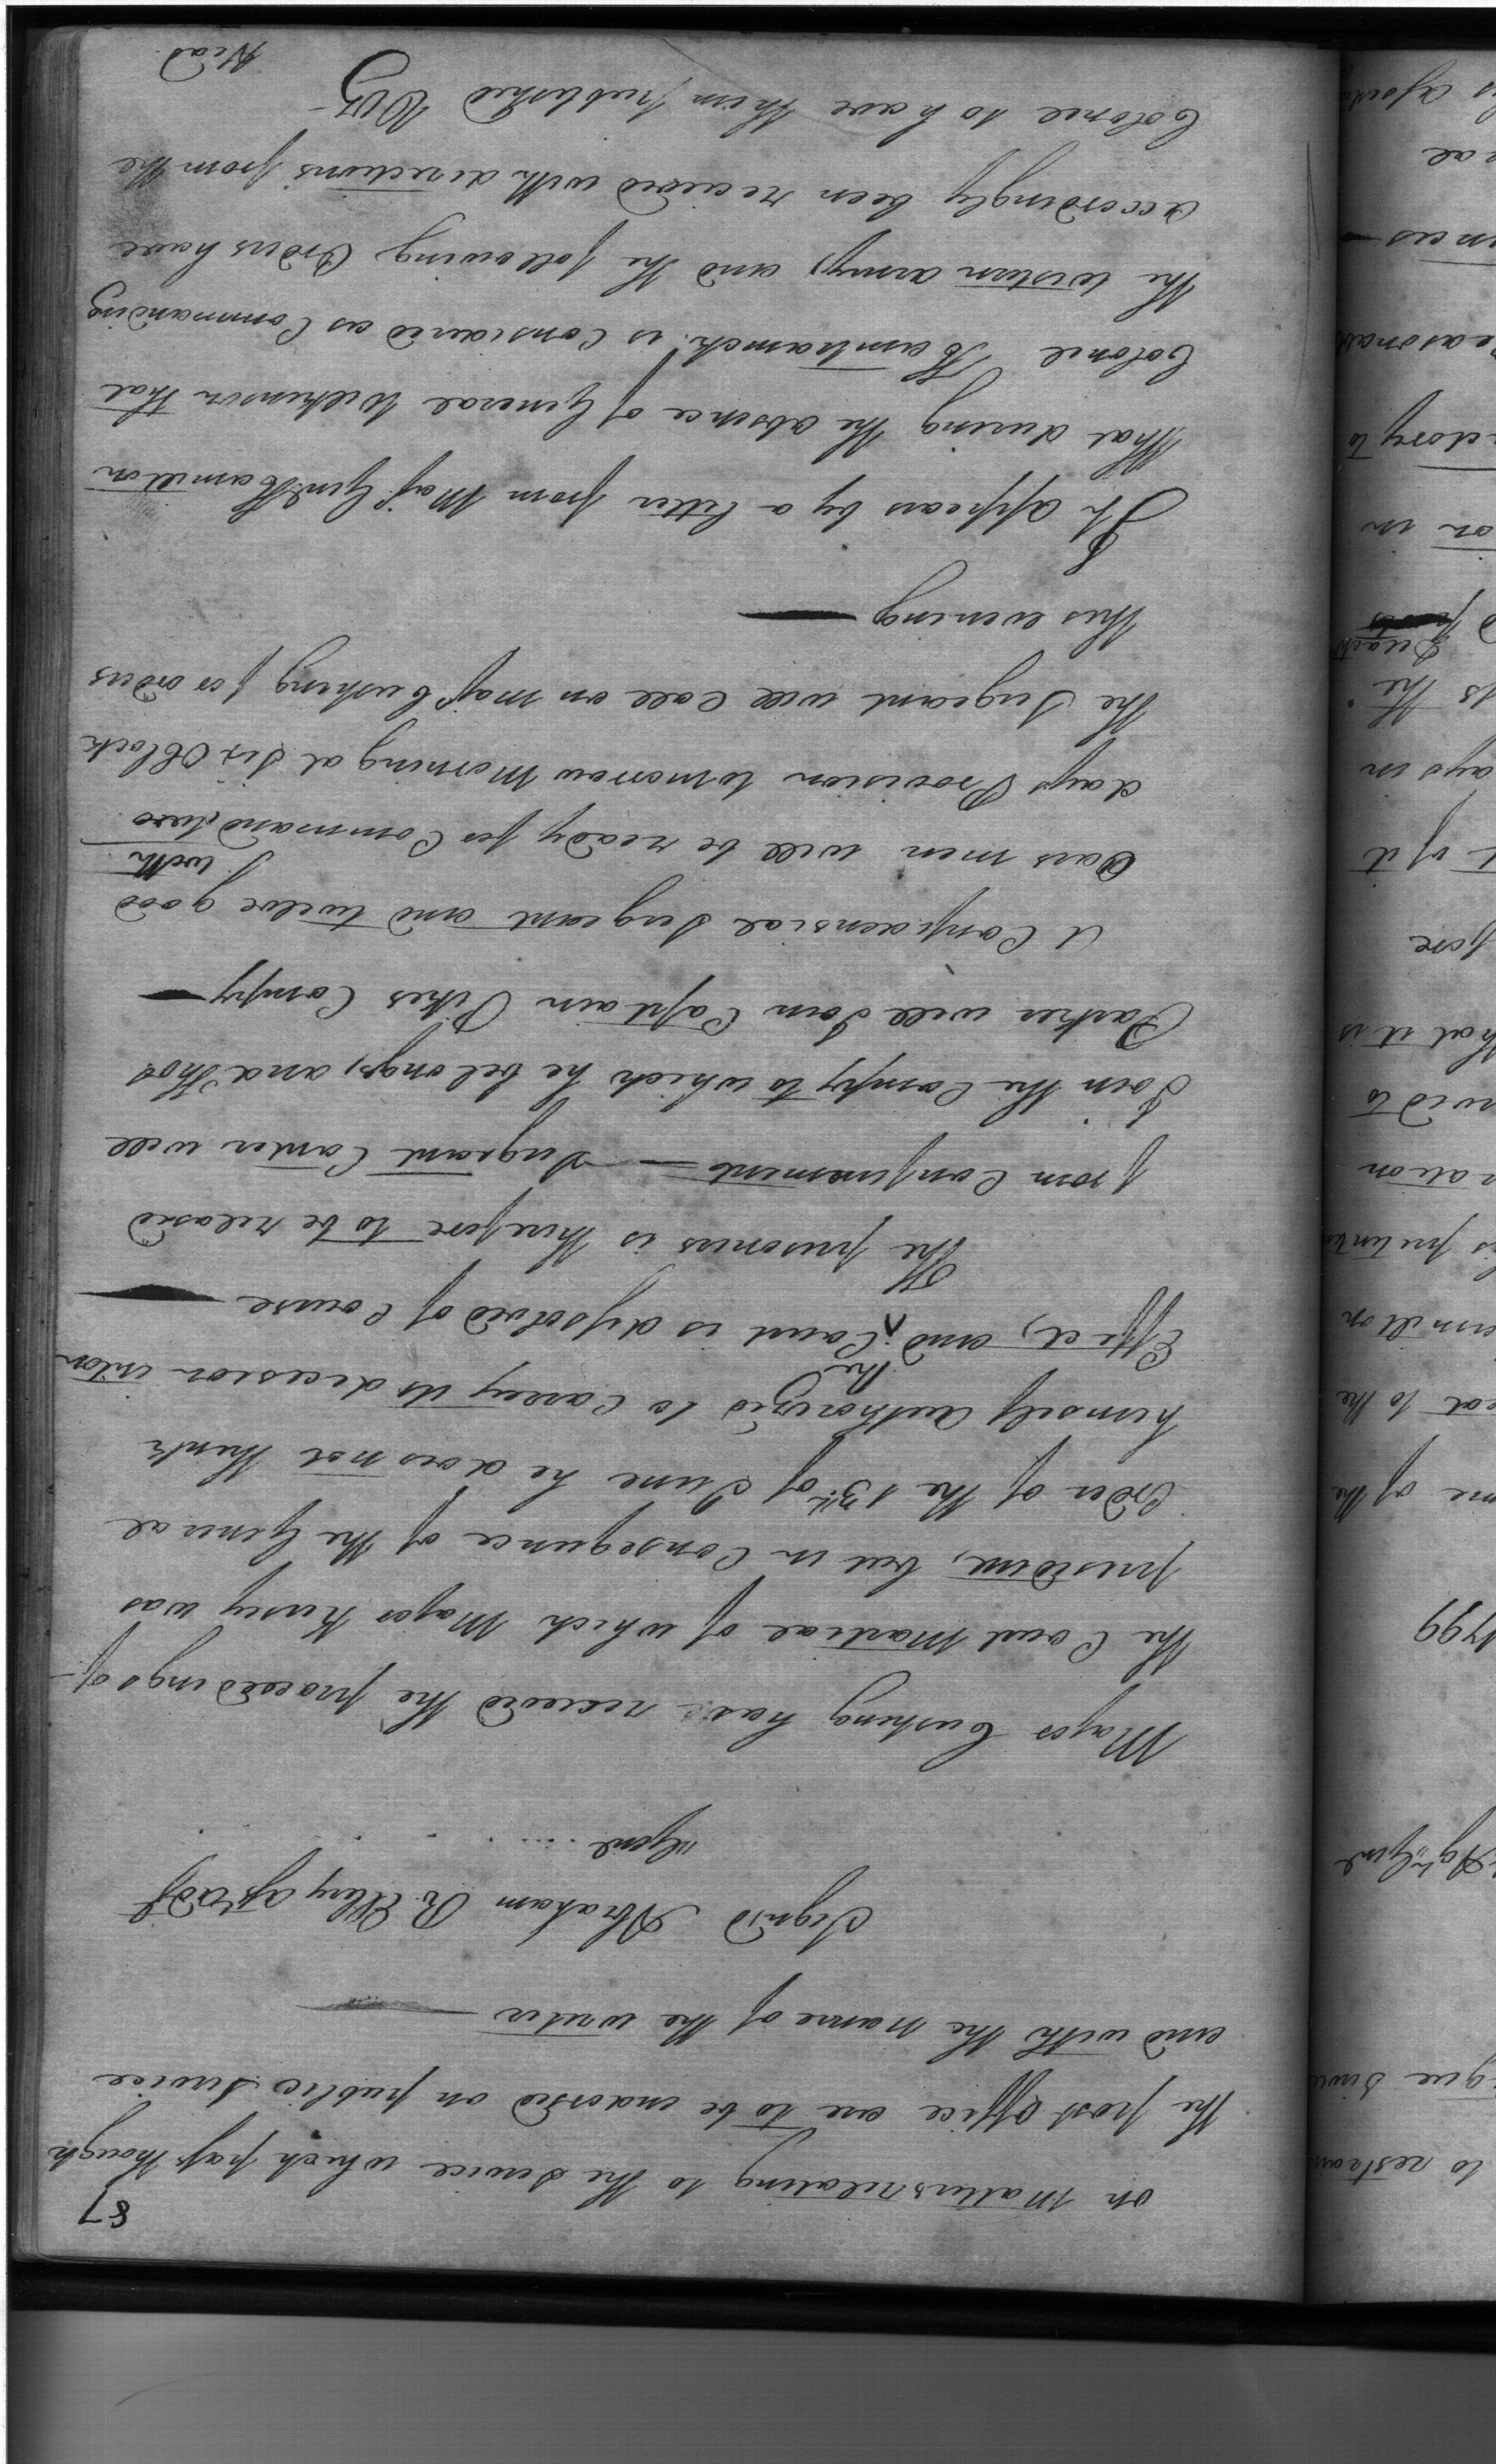 87
on Matters relating to the service which pass though
the post office are to be endorsed on public Service
and with the name of the writer
Signd Abraham R Ellery asst adjt
Genl
Major Cushing has received the proceedings of
the Court Martial of which Major Kersey was
president, but in Consequence of the General
Order of the 13th of June he does not think
himself authorized to Carrey its decesion into
Effect, and the Court is dissolved of Course
The prisoners is therefore to be released
from Confinement — Sergeant Carter will
Join the Compy to which he belongs, and Thos
Parker will Join Captain Pikes Compy
A Confidensial Sergeant and twelve good
Oars men will be ready for Command, with two
days Provision tomorrow Morning at Six OClock
The Sergeant will Call on Majr Cushing for orders
this evening
It appears by a letter from Majr Genl Hamilton
that during the absence of General Wilkinson that
Colonel Hamtramck is Considered as Commanding
the western army, and the following Orders have
accordingly been received with directions from the
Colonel to have them published Viz
Head
1799
Agt Genl
me of the
eal to the
ration
hat it is
fore
t of it
ays in
ts the
on in
to restrain